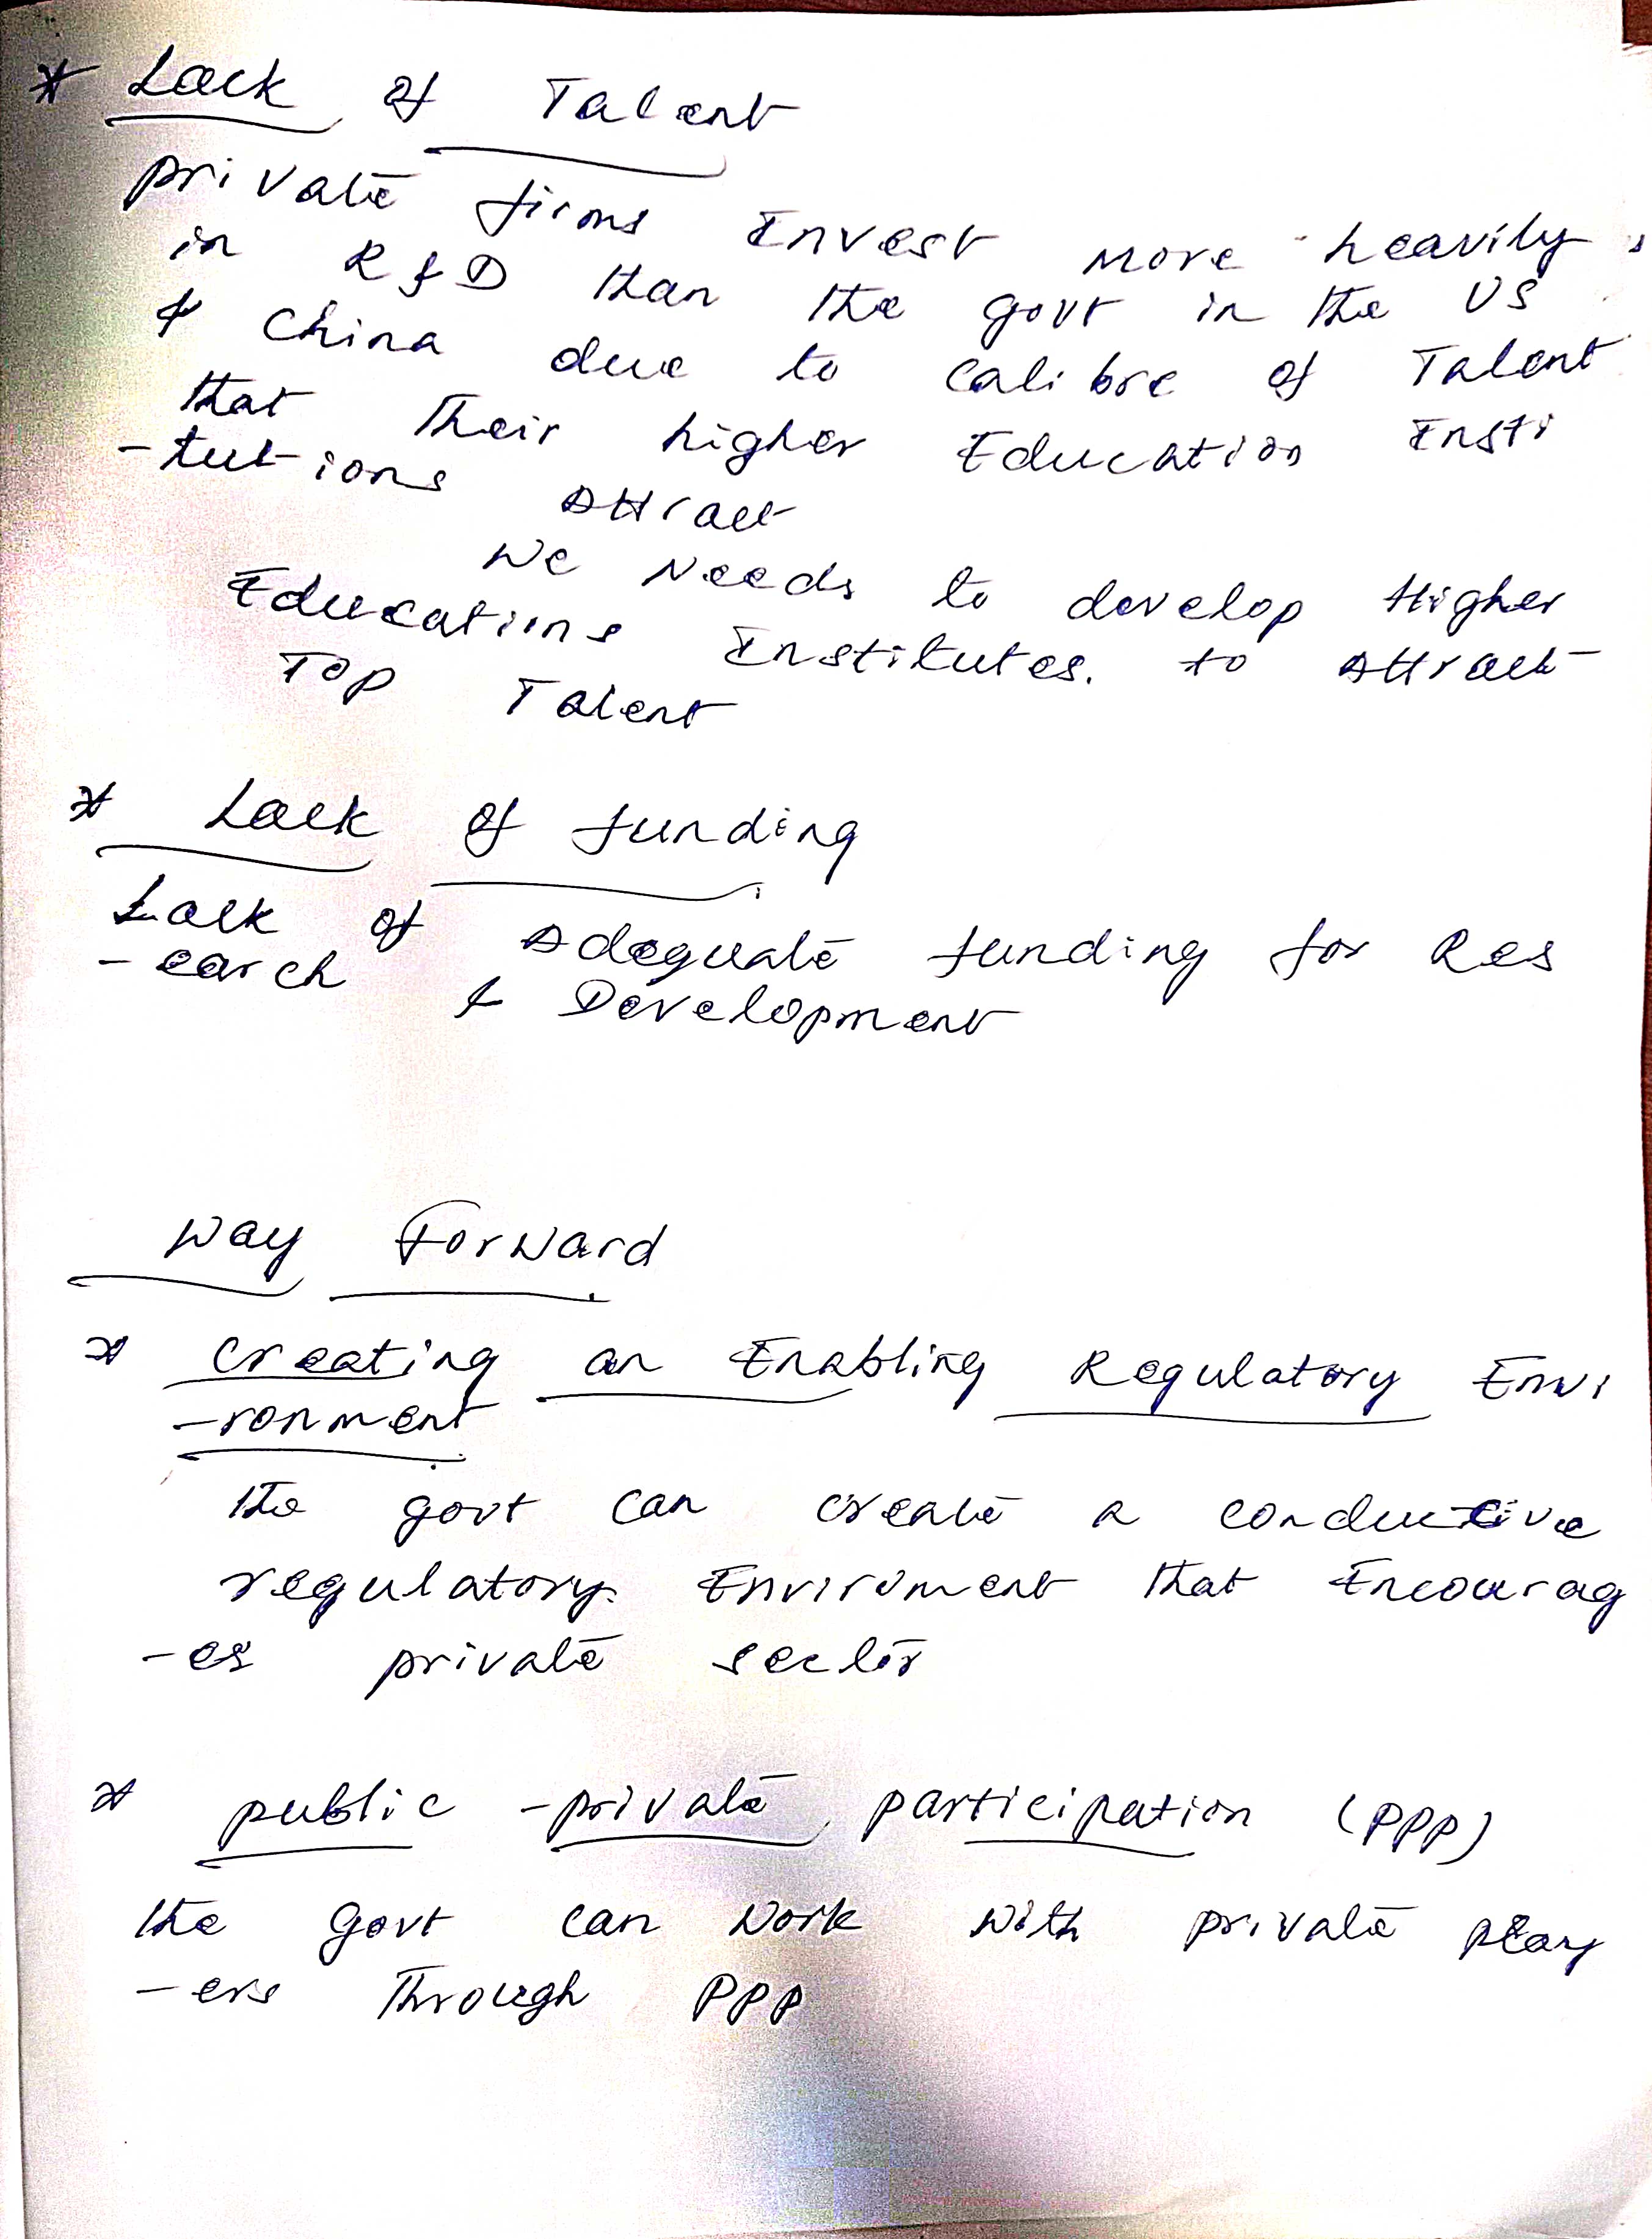 * Lack of Talent
private firms Invest more heavily
in R & D than the govt in the US
& China due to calibre of Talent
that their higher Education Insti
-tutions Attract
We Needs to develop Higher
Educations Institutes. to Attract
Top Talent
* Lack of funding
Lack of Adequate funding for Res
-earch & Development
Way Forward
* Creating an Enabling Regulatory Envi
-ronment
the govt can create a conducive
regulatory Enviroment that Encourag
-es private sector
* public -private participation (PPP)
the govt can work with private play
-ers through PPP